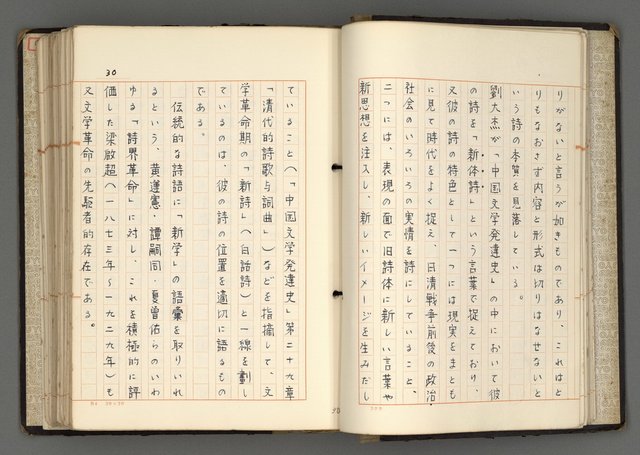 りがないと言うが如きものであり これはと
りもなおさず内容と形式は切りはなせないと
いう詩の本質を見落している。
劉大杰が「中国文学発達史」の中において彼
の詩を「新体詩」という言葉で捉えており、
又彼の詩の特色として一つには現実をまとも
に見て時代をよく捉え、日清戦争前後の政治・
社会のいろいろの実情を詩にしていること、
二つには、表現の面で旧詩体に新しい言葉や
新思想を注入し、新しいイメージを生みだし
30
ていること(「中国文学発達史」第二十九章
「清代的詩歌与詞曲」)などを指摘して、文
学革命期の「新詩」(白話詩)と一線を劃し
ているのは、彼の詩の位置を適切に語るもの
である。
伝統的な詩語に「新学」の語彙を取りいれ
るという、黄遵憲・譚嗣同・夏曽佑らのいわ
ゆる「詩界革命」に対し、これを積極的に評
価した梁啟超(一八七三年〜一九二九年)も
又文学革命の先駆者的存在である。